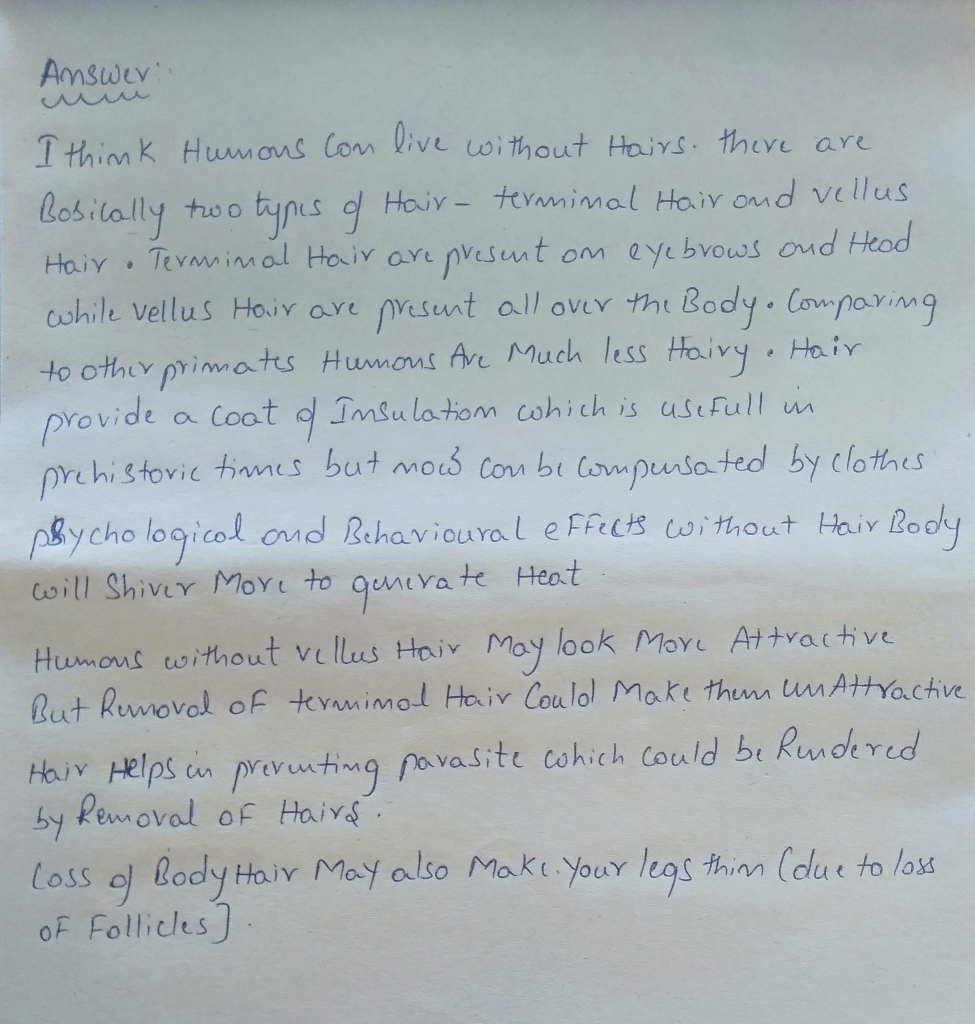 Answer:
I think Humans Can live without Hairs. there are
Basically two types of Hair - terminal Hair and vellus
Hair. Terminal Hair are present on eyebrows and Head
while vellus Hair are present all over the Body. Comparing
to other primates Humans Are Much less Hairy. Hair
provide a coat of Insulation which is usefull in
prehistoric times but now can be compensated by clothes
psychological and Behavioural effects without Hair Body
will Shiver More to generate Heat.
Humans without vellus Hair May look More Attractive
But Removal of terminal Hair Could Make them unAttractive
Hair Helps in preventing parasite which could be Rendered
by Removal of Hairs.
Loss of Body Hair May also Make your legs thin (due to loss
of Follicles].